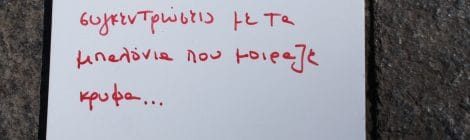 συγκεντρώσεις με τα
μπαλόνια που μοιραζε
κρυφα...